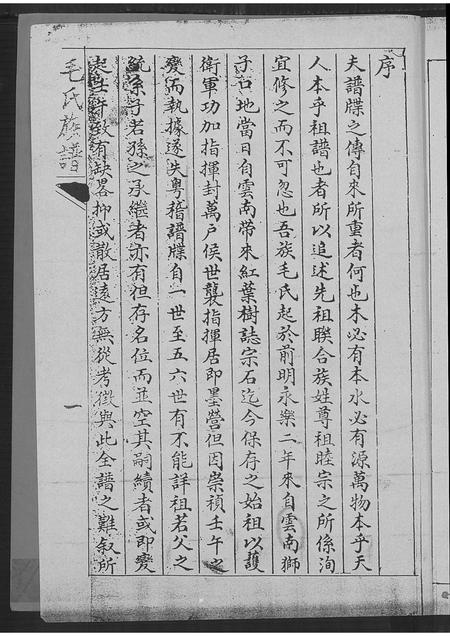 序
夫譜牒之傳自來所重者何也木必有本水必有源萬物本乎天
人本乎祖譜也者所以追述先祖聯合族姓尊祖睦宗之所係洵
宜修之而不可忽也吾族毛氏起於前明永樂二年來自雲南獅
子口地當日自雲南帶來紅葉樹誌宗石迄今保存之始祖以護
衛軍功加指揮封萬戶侯世襲指揮居即墨營但因崇禎壬午之
變而執據遂失粵稽譜牒自一世至五六世有不能詳祖若父之
統系子若孫之承繼者亦有但存名位而並空其嗣續者或即變
失仕許數有缺畧抑或散居遠方無從考徵與此全譜之難叙所
毛氏族譜
一